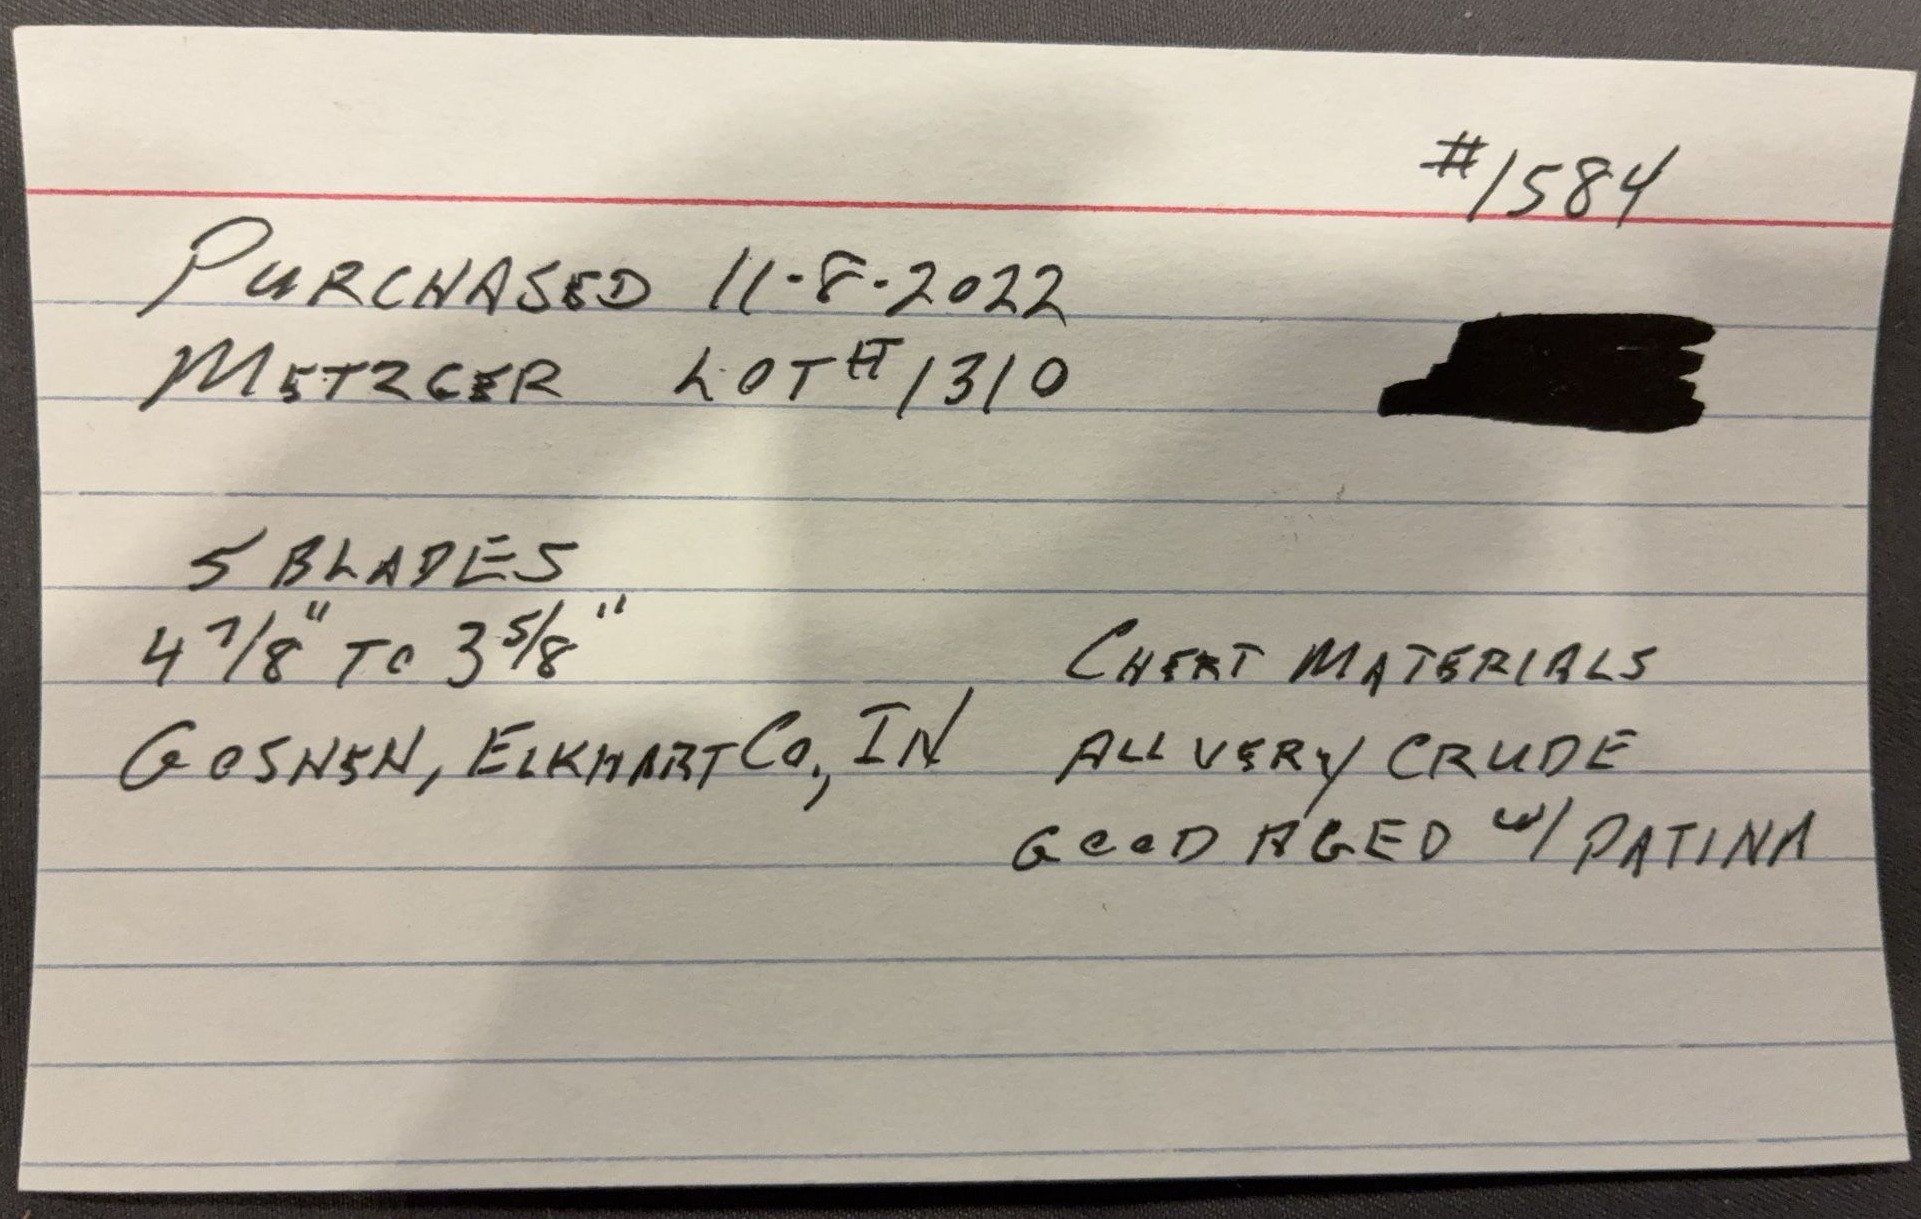 #1584
PURCHASED 11-8-2022
METZGER LOT# 1310
5 BLADES
4 7/8" TO 3 5/8"
GOSHEN, ELKHART CO., IN
CHERT MATERIALS
ALL VERY CRUDE
GOOD AGED W/ PATINA